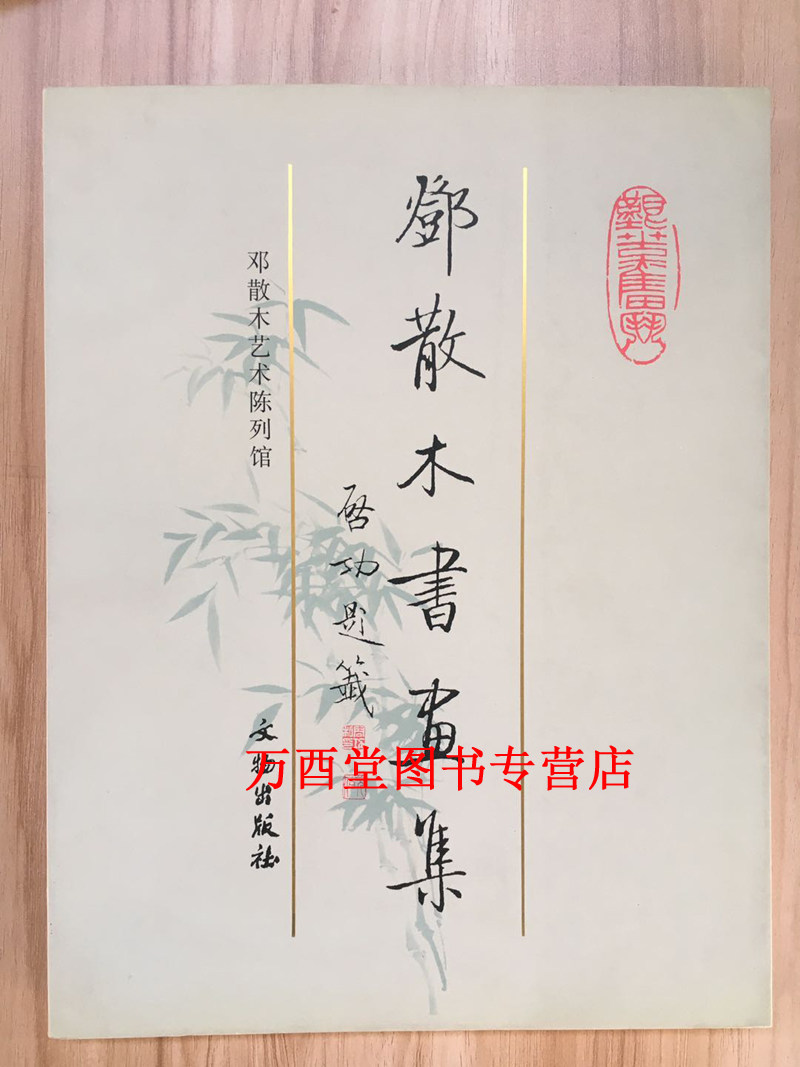 鄧散木書畫集
啓功題籤
邓散木艺术陈列馆
文物出版社
万酉堂图书专营店